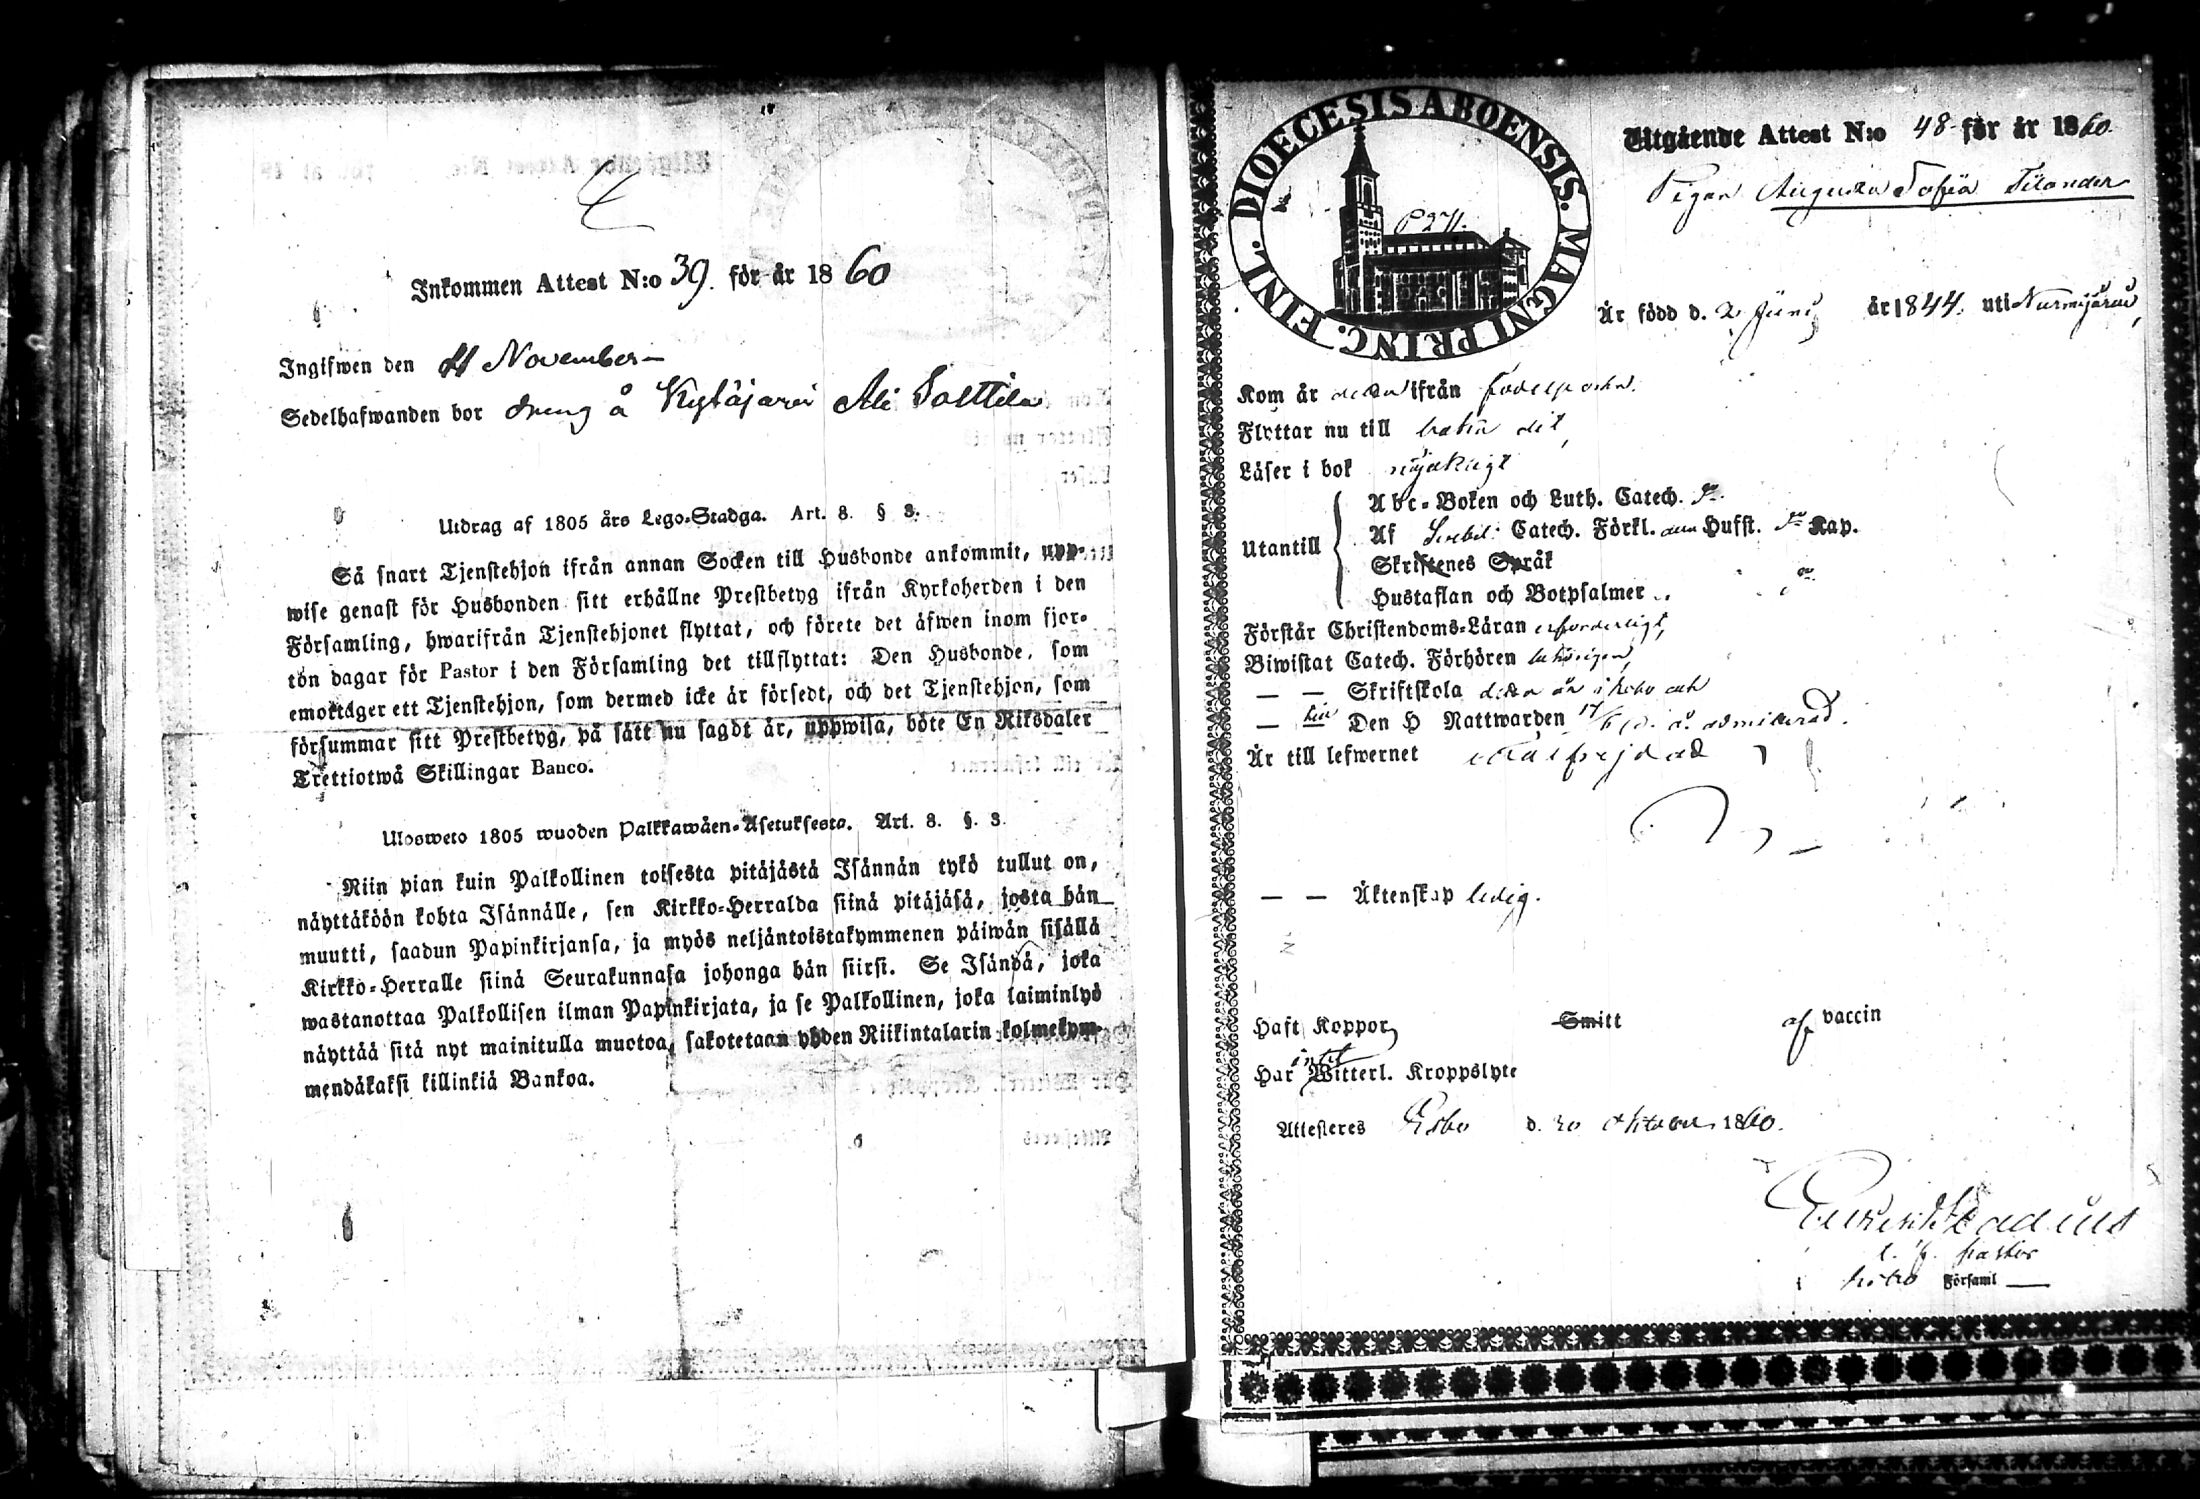 Inkommen Attest N:o 39. för år 1860
Ingifwen den 4 November
Sedelhafwanden bor dreng å Kytäjärvi Ali Solttila
Utdrag af 1805 års Lego-Stadga. Art. 8. § 3.
Så snart Tjenstehjon ifrån annan Socken till Husbonde ankommit, upp-
wise genast för Husbonden sitt erhållne Prestbetyg ifrån Kyrkoherden i den
Församling, hwarifrån Tjenstehjonet flyttat, och förete det äfwen inom fjor-
ton dagar för Pastor i den Församling det tillflyttat: Den Husbonde, som
emottager ett Tjenstehjon, som dermed icke är försedt, och det Tjenstehjon, som
försummar sitt Prestbetyg, på sätt nu sagdt är, uppwisa, böte En Riksdaler
Trettiotwå Skillingar Banco.
Ulosweto 1805 wuoden Palkkawäen-Asetuksesta. Art. 8. §. 3.
Niin pian kuin Palkollinen toisesta pitäjästä Isännän tykö tullut on,
näyttäköön kohta Isännälle, sen Kirkko-Herralda siinä pitäjäsä, josta hän
muutti, saadun Papinkirjansa, ja myös neljäntoistakymmenen päiwän sisällä
Kirkko-Herralle siinä Seurakunnasa johonga hän siirsi. Se Isändä, joka
wastanottaa Palkollisen ilman Papinkirjata, ja se Palkollinen, joka laiminlyö
näyttää sitä nyt mainitulla muotoa, sakotetaan yhden Riikintalarin kolmekym-
mendäkaksi killinkiä Bankoa.
DIOECESIS ABOENSIS. MAGNI PRINC. FINL.
P 271.
Utgående Attest N:o 48 för år 1860.
Pigan Augusta Sofia Silander
Är född d. 2 Juni år 1844. uti Nurmijärvi,
Kom år detta ifrån födelseorten.
Flyttar nu till bakå dit,
Läser i bok nöjaktigt
Utantill
Abc-Boken och Luth. Catech. Do.
Af Svebel: Catech. Förkl. dess Husst. Do Kap.
Skriftenes Språk
Hustaflan och Botpsalmer
Förstår Christendoms-Läran erforderligt,
Biwistat Catech. Förhören behörigen,
— — Skriftskola detta år i Esbo och
— Den H Nattwarden admitterad.
Är till lefwernet wälfrejdad
— — Äktenskap ledig.
Haft Koppor, Smitt af vaccin
Har intet Witterl. Kroppslyte
Attesteres Esbo d. 20 oktober 1860.
t. f. pastor
i Esbo Församl